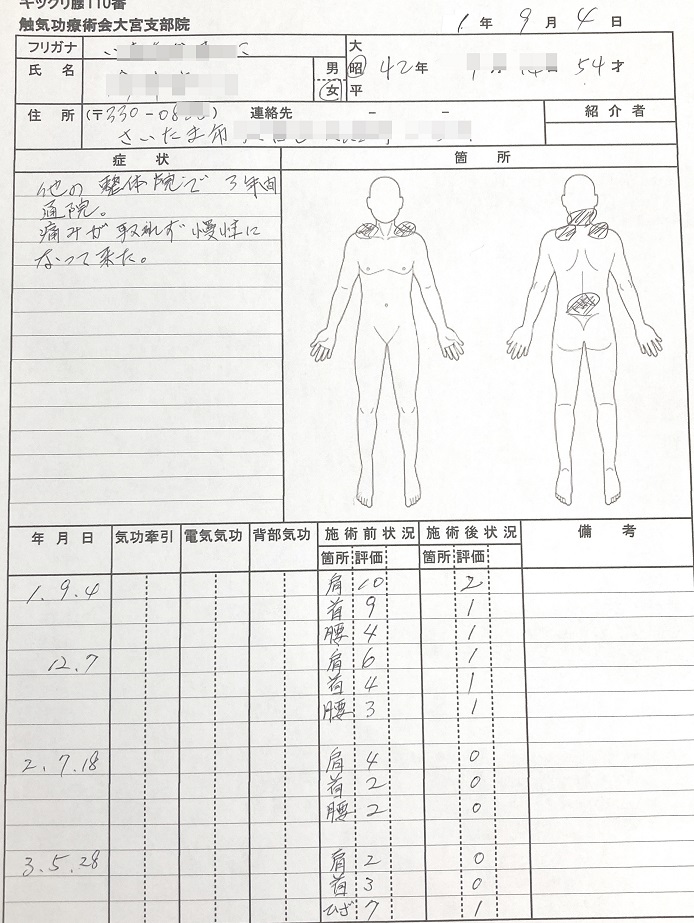 ギックリ腰110番
触気功療術会大宮支部院
1年 9月 4日
フリガナ
氏 名
男
女
大
昭 42年 54才
平
住 所 (〒330-08 ) 連絡先 - -
さいたま市
紹 介 者
症 状
箇 所
他の整体院で3年間
通院。
痛みが取れず慢性に
なって来た。
年 月 日 気功牽引 電気気功 背部気功 施 術 前 状 況 施 術 後 状 況 備 考
箇所 評価 箇所 評価
1.9.4 肩 10 2
首 9 1
腰 4 1
12.7 肩 6 1
首 4 1
腰 3 1
2.7.18 肩 4 0
首 2 0
腰 2 0
3.5.28 肩 2 0
首 3 0
ひざ 7 1